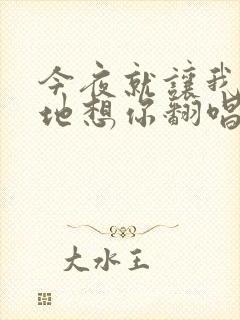 今夜就讓我
地想你翻唱
大水王